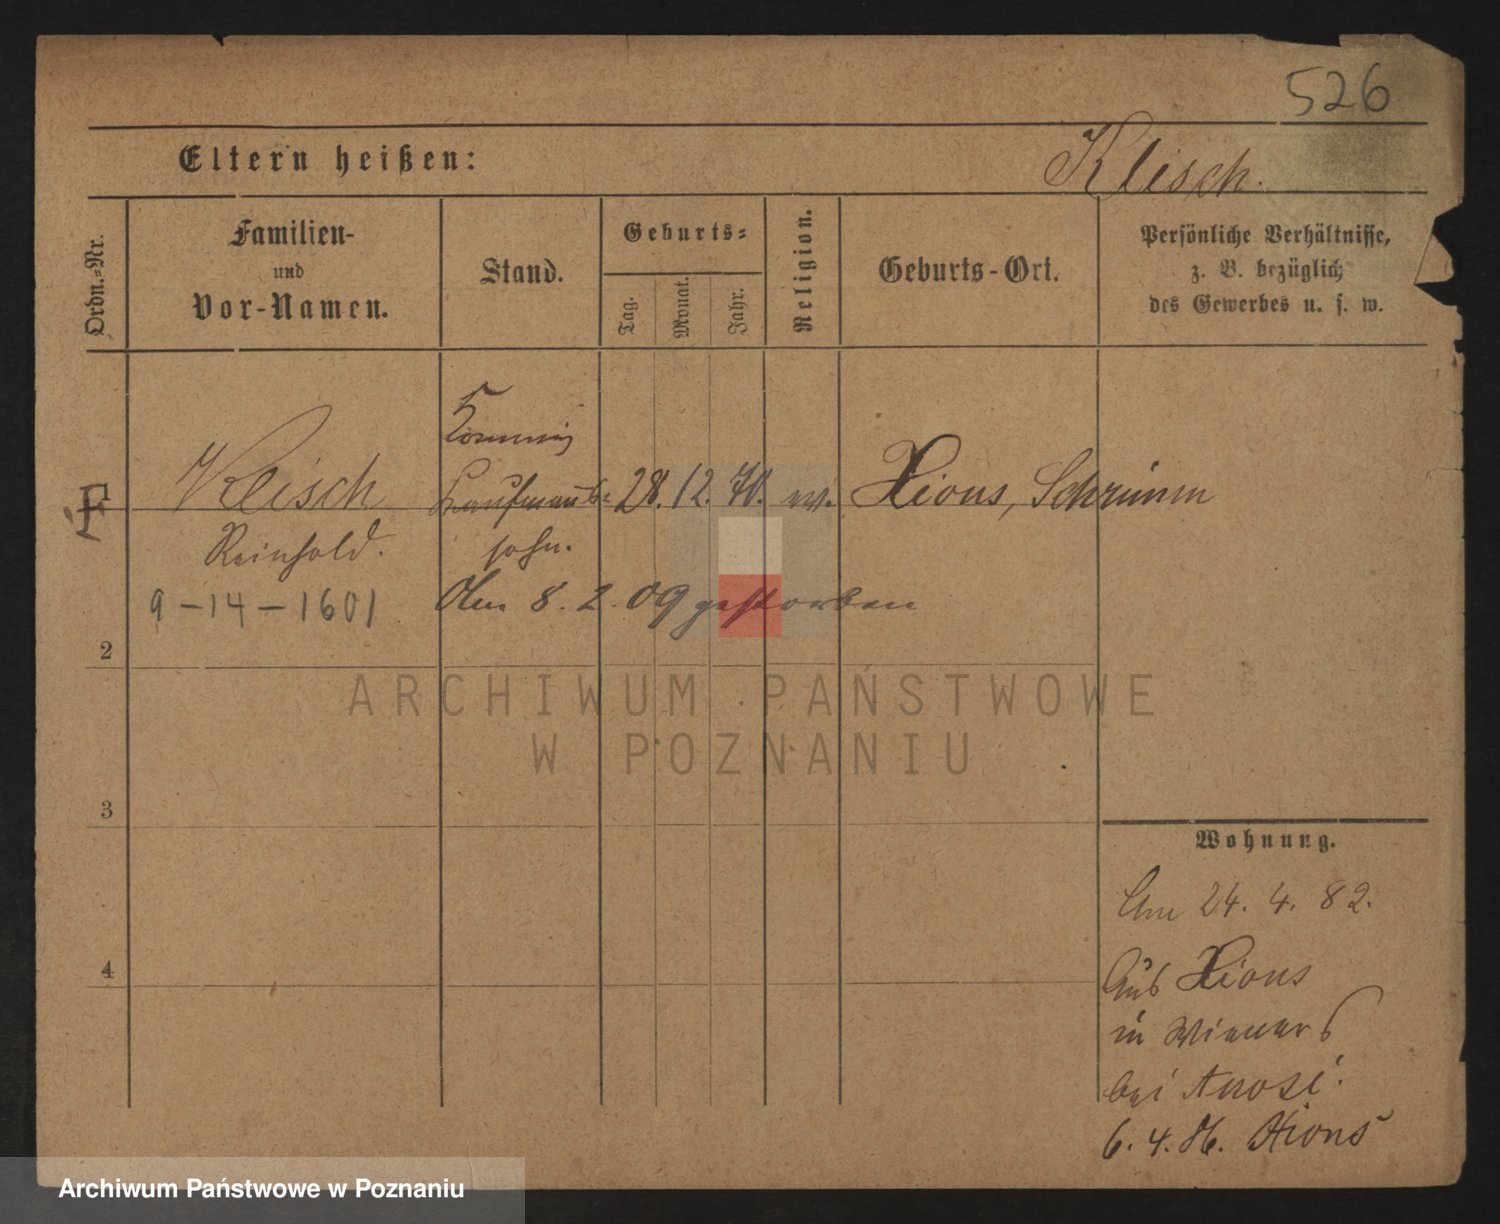 526
Eltern heißen:
Klisch.
Ordn.=Nr.
Familien-
und
Vor-Namen.
Stand.
Geburts=
Tag.
Monat.
Jahr.
Religion.
Geburts-Ort.
Persönliche Verhältnisse,
z. B. bezüglich
des Gewerbes u. s. w.
Klisch
Reinhold.
9-14-1601
Kommis
Kaufmanns=
sohn.
28. 12. 70. ev. Xions, Schrimm
Am 8. 2. 09 gestorben
2
3
4
Wohnung.
Am 24. 4. 82.
Aus Xions
in
bei
6. 4. 86. Xions
ARCHIWUM PAŃSTWOWE
W POZNANIU
Archiwum Państwowe w Poznaniu